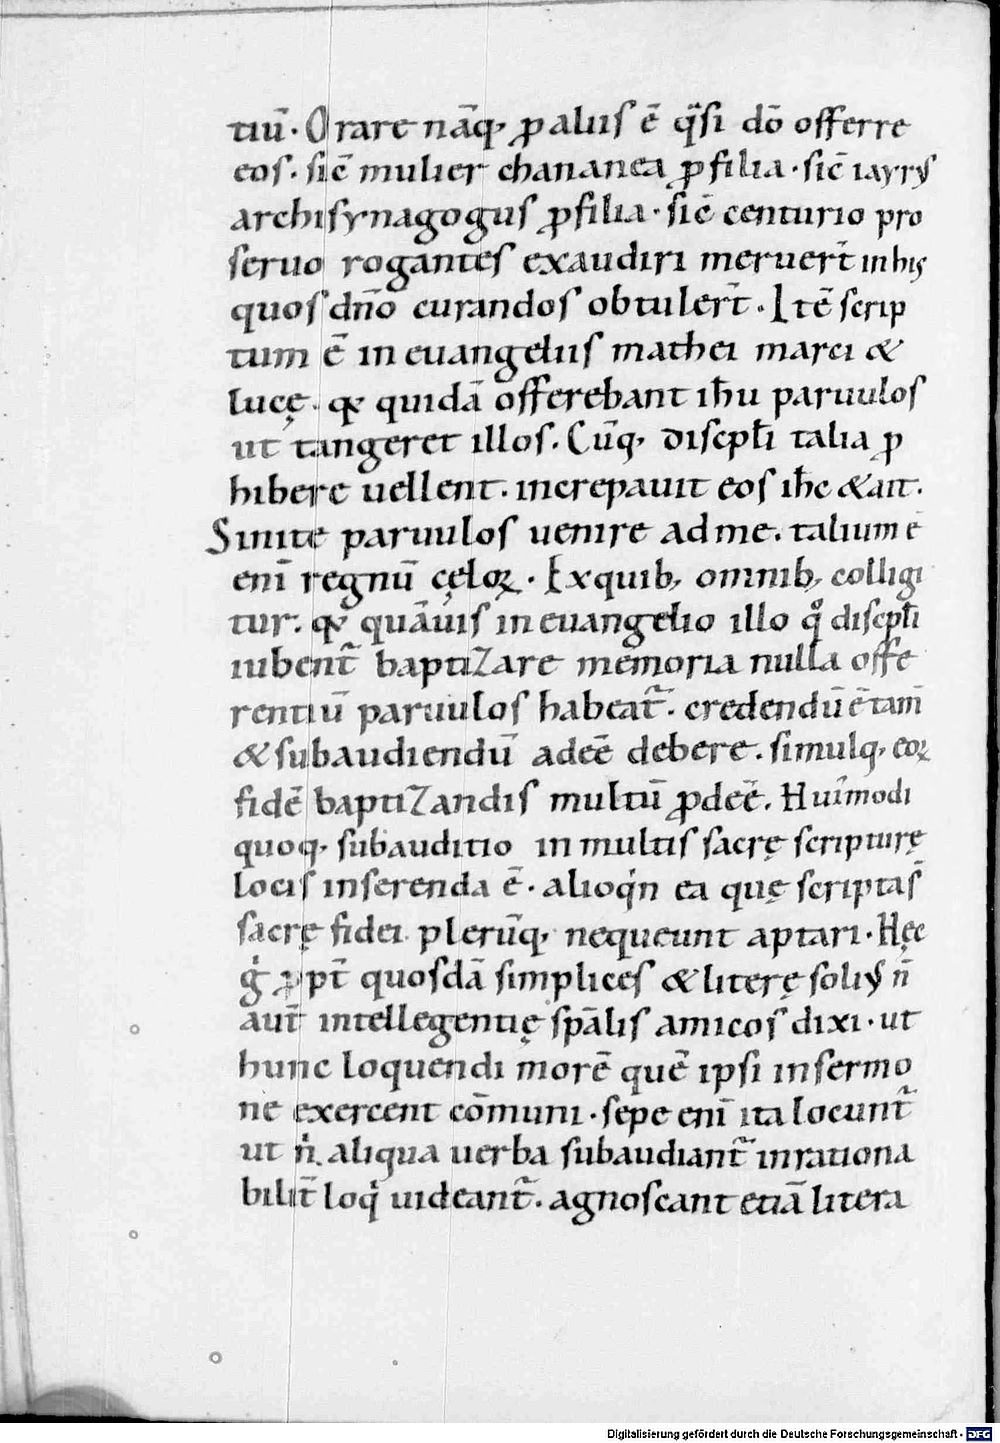 tiū. Orare nāq; ꝓ aliis ē q̄si dō offerre
eos. sic̄ mulier chananea ꝓ filia. sic̄ iayrus
archisynagogus ꝓ filia. sic̄ centurio pro
seruo rogantes exaudiri meruer̄t in his
quos dn̄o curandos obtuler̄t. Itē scrip
tum ē in euangeliis mathei marci &
lucę. qđ quidā offerebant ih̄u paruulos
ut tangeret illos. Cūq; discipl̄i talia ꝓ
hibere uellent. increpauit eos ih̄c & ait.
Sinite paruulos uenire ad me. talium ē
eni̅ regnū cęloꝝ. Ex quib; omnib; colligi
tur. qđ quāuis in euangelio illo qͦ discipl̄i
iubent̄ baptizare memoria nulla offe
rentiū paruulos habeat̄. credendū ē tam̄
& subaudiendū adeē debere. simulq; eoꝝ
fidē baptizandis multū ꝓdeē. Hui̅modi
quoq; subauditio in multis sacrę scripturę
locis inserenda ē. alioqⁱn ea quę scripta s̄
sacrę fidei plerūq; nequeunt aptari. Hęc
gⁱ ꝓpt̄ quosdā simplices & literę solius n̄
aut̄ intellegentię sp̄alis amicos dixi. ut
hunc loquendi morē quē ipsi in sermo
ne exercent cōmuni. sepe eni̅ ita locunt̄
ut nⁱ aliqua uerba subaudiant̄ inrationa
bilit̄ loqⁱ uideant̄. agnoscant etiā litera
Digitalisierung gefördert durch die Deutsche Forschungsgemeinschaft - DFG